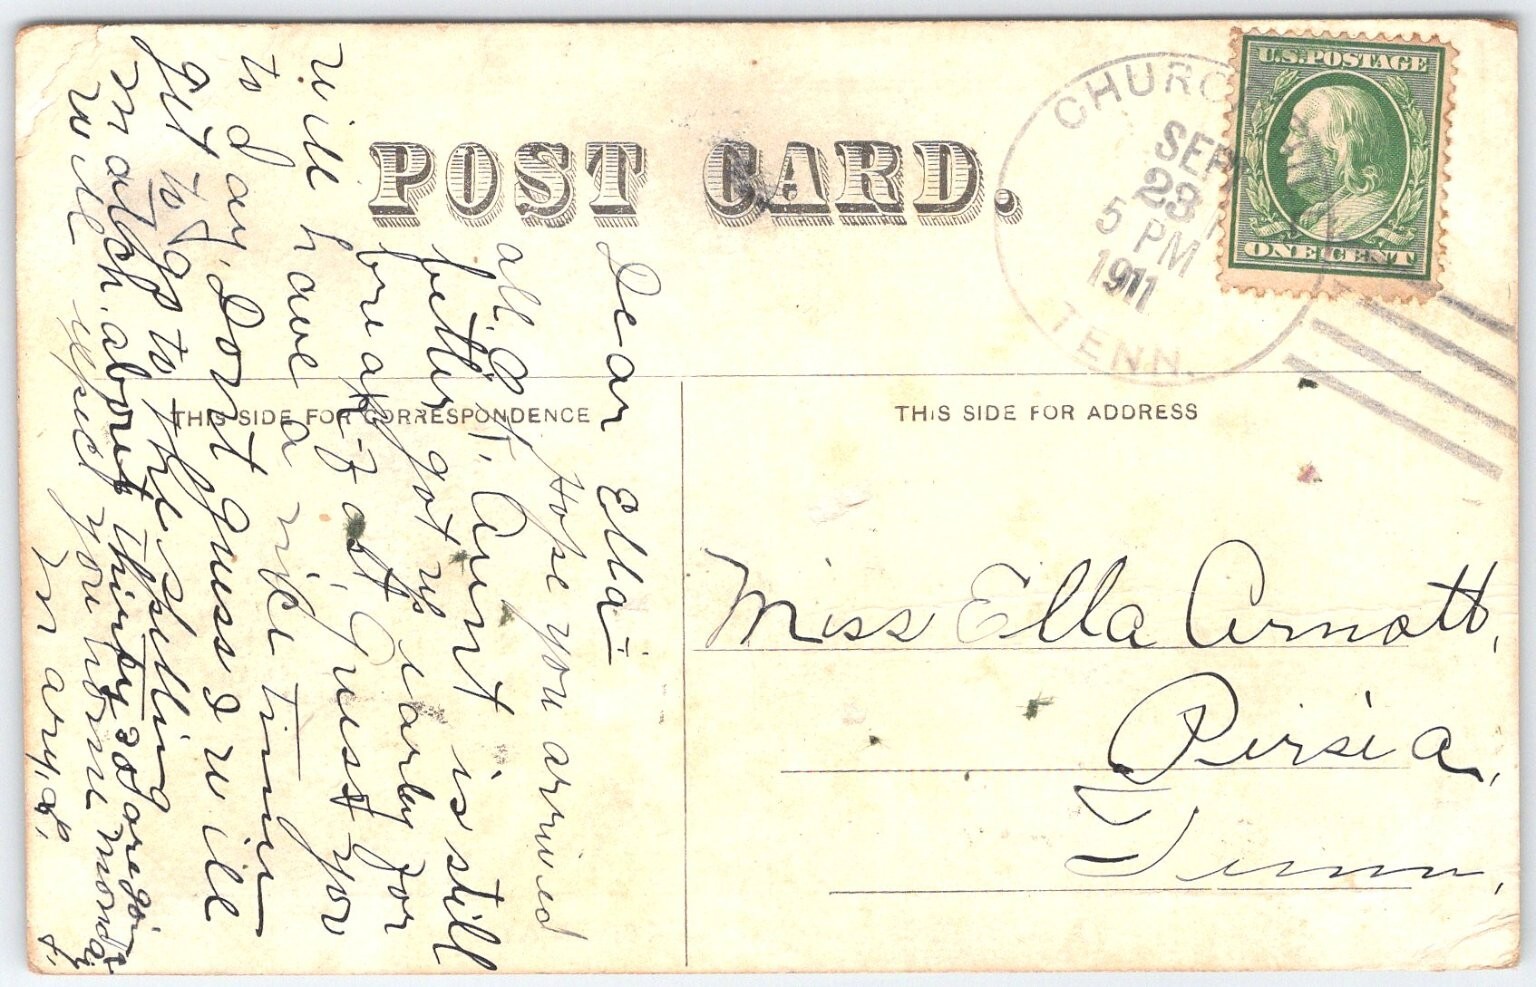 POST CARD.
CHURC
SEP
23
5 PM
1911
TENN.
U.S. POSTAGE
ONE CENT
THIS SIDE FOR CORRESPONDENCE
THIS SIDE FOR ADDRESS
Dear Ella-
Hope you arrived
all O.K. Aunt is still
better, got up early for
breakfast, Guess you
will have a nice time
to day, Dont guess I will
get to go to the spelling
match, about thirty 30 are going
will you home monday
Mary, 
Miss Ella Arnott,
Persia,
Tenn,